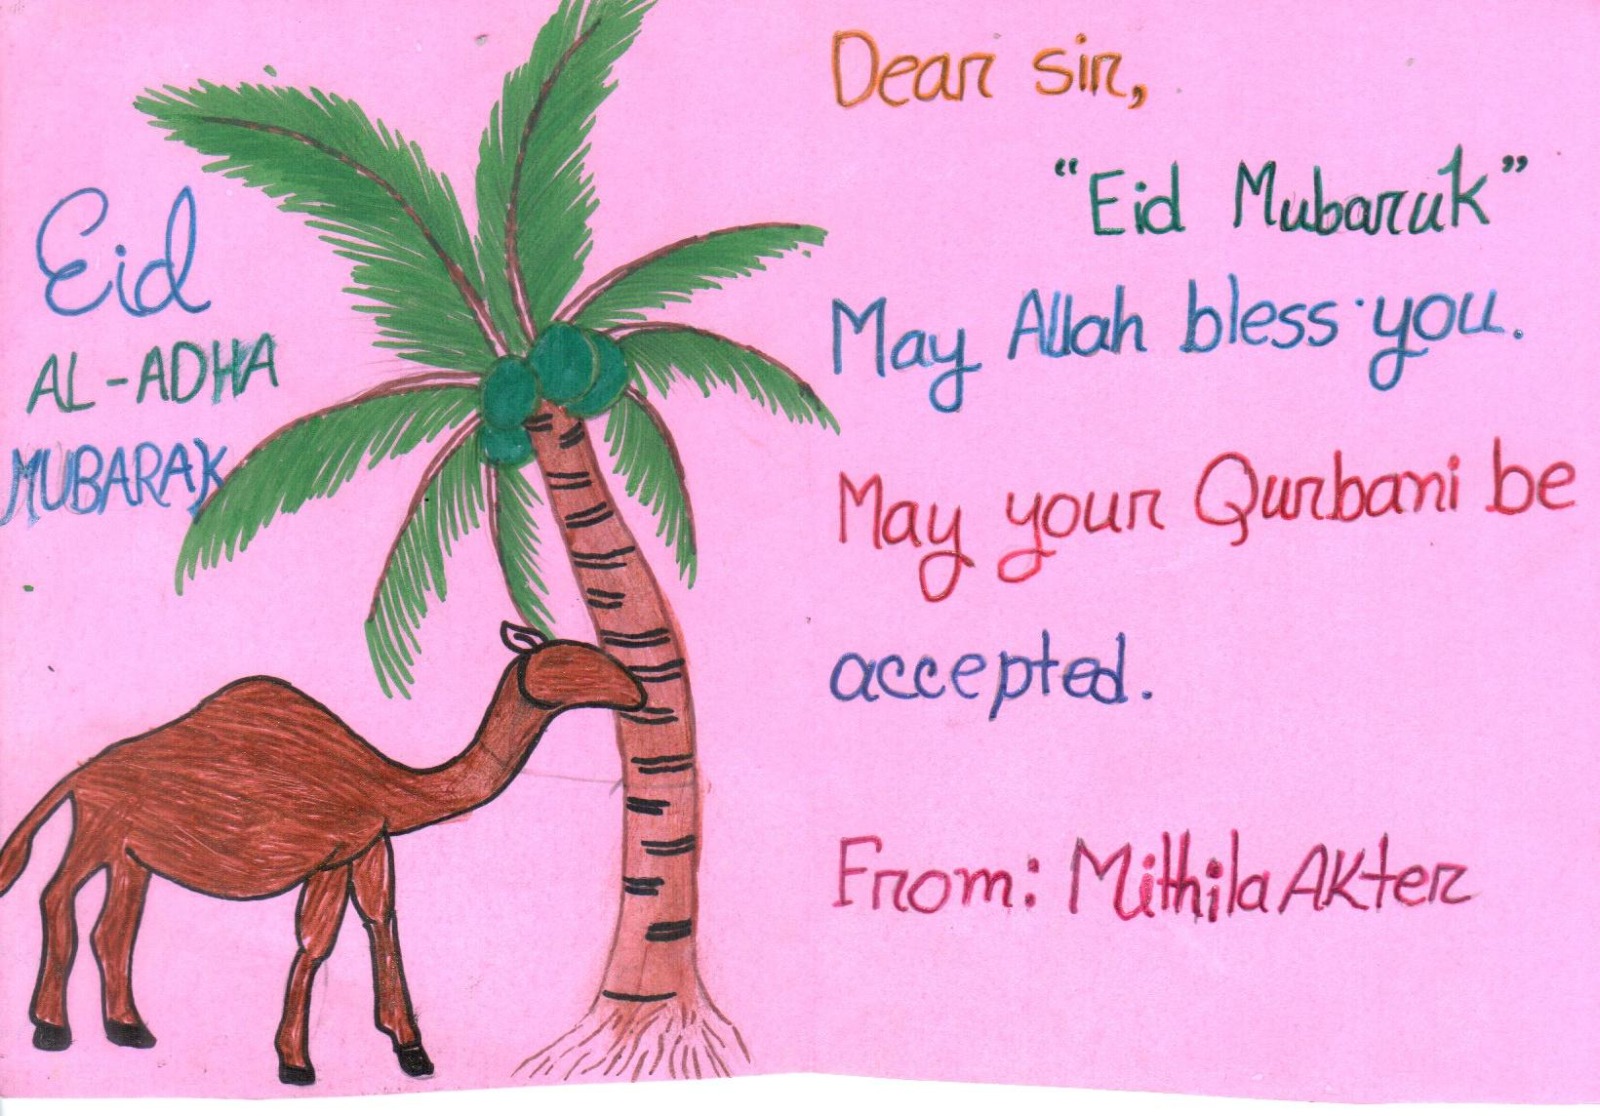 Eid
AL-ADHA
MUBARAK
Dear sir,
"Eid Mubaruk"
May Allah bless you.
May your Qurbani be
accepted.
From: Mithila AKter